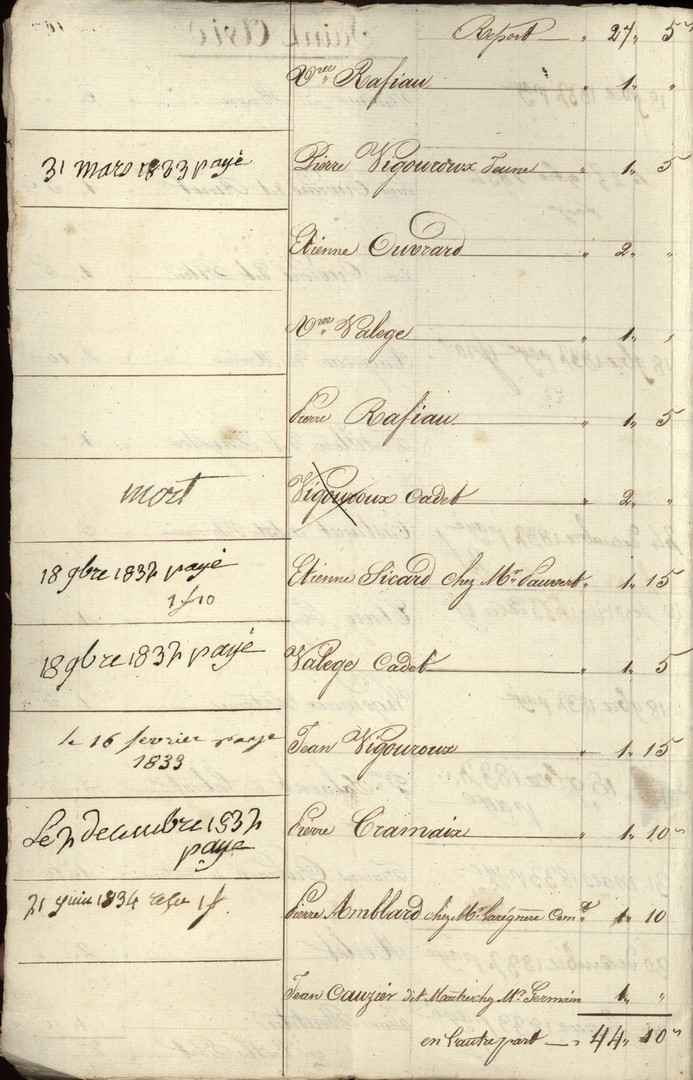 Report — " 27 " 5
Vve Rafiau " 1 " "
31 mars 1833 payé Pierre Vigouroux Jeune " 1 " 5
Etienne Ouvrard " 2 " "
Vve Valege " 1 " "
Pierre Rafiau " 1 " 5
mort Vigouroux Cadet " 2 " "
18 9bre 1832 payé Etienne Sicard chez Mr Sauvert " 1 " 15
1f 10
18 9bre 1832 payé Valege Cadet " 1 " 5
le 16 fevrier paye Jean Vigouroux " 1 " 15
1833
Le 2 decembre 1832 Pierre Cramaix " 1 " 10
paye
21 juin 1834 reçu 1f Pierre Amblard chez Mr Com " 1 " 10
Jean Cauzier dit chez Mr Germain 1 " "
en l'autre part — " 44 " 10